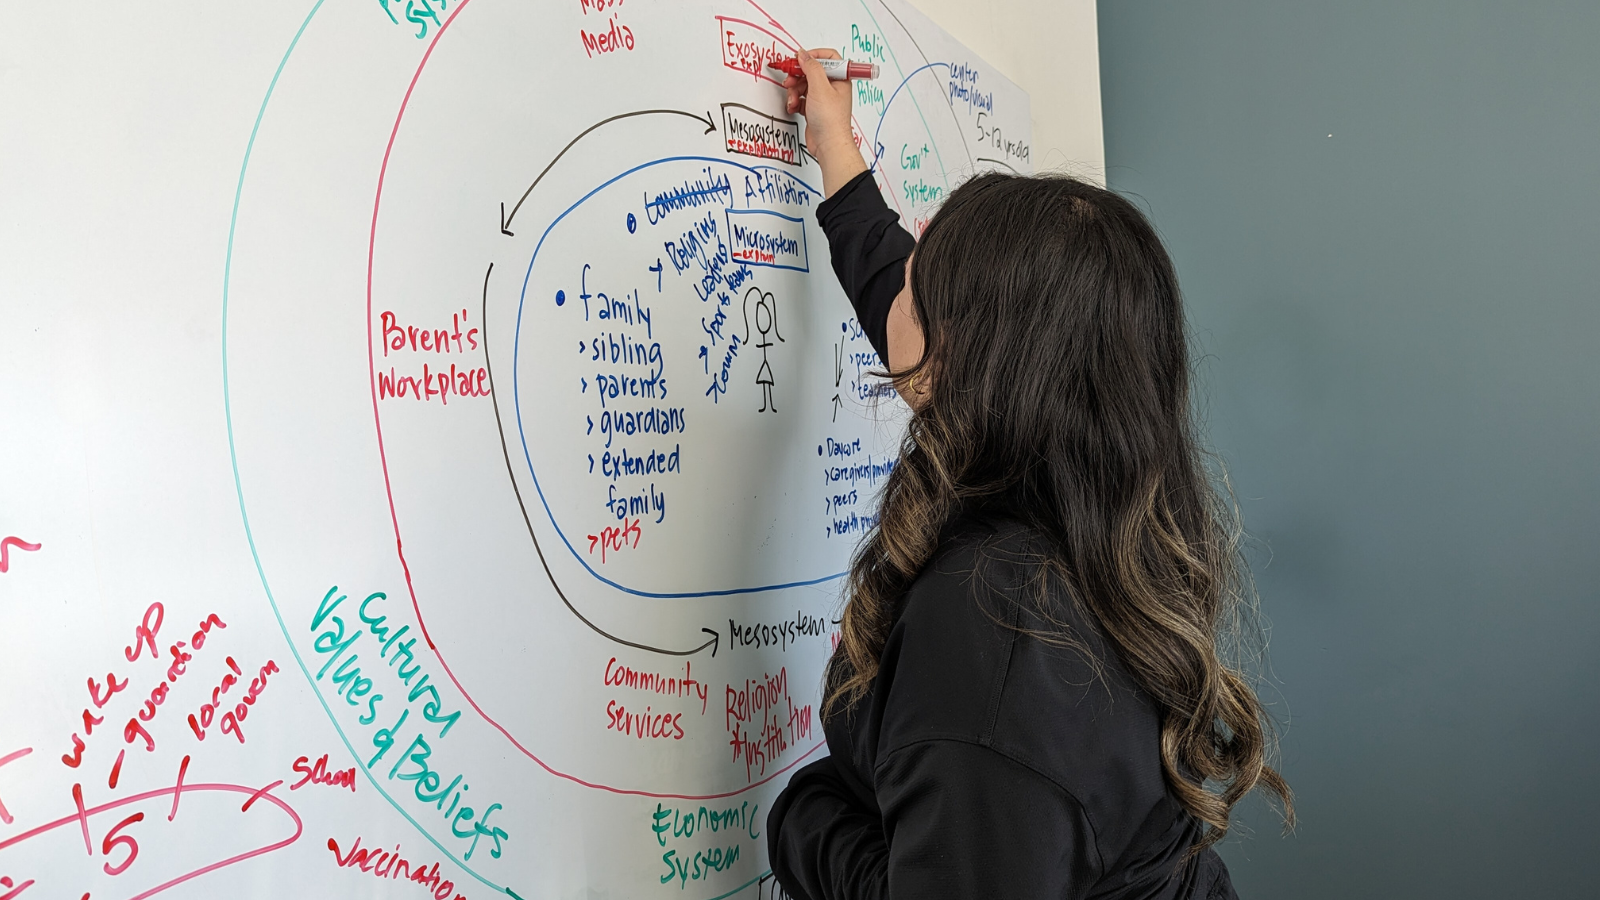 Mass
Media
Exosystem
- exp
Public
Policy
center
photo/visual
5-12 yrs old
Gov't
system
Mesosystem
- explanation
Community Affiliation
Microsystem
- explain
> Religious
leaders
> Sports teams
> Comm
• family
> sibling
> parents
> guardians
> extended
family
> pets
> peers
> teachers
• Daycare
> caregivers/provide
> peers
> health pr
Parent's
Workplace
Mesosystem
Community
Services
Religion
* Institution
Cultural
Values & Beliefs
Economic
System
wake up
guardian
local
govern
School
5
Vaccination